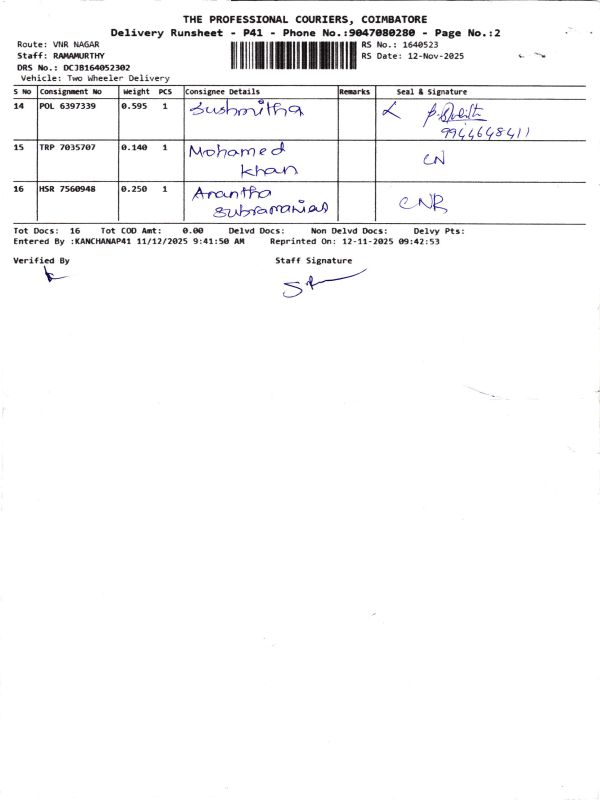 THE PROFESSIONAL COURIERS, COIMBATORE
Delivery Runsheet - P41 - Phone No.:9047080280 - Page No.:2
Route: VNR NAGAR RS No.: 1640523
Staff: RAMAMURTHY RS Date: 12-Nov-2025
DRS No.: DCJB164052302
Vehicle: Two Wheeler Delivery
S No Consignment No Weight PCS Consignee Details Remarks Seal & Signature
14 POL 6397339 0.595 1 Sushmitha
9944648411
15 TRP 7035707 0.140 1 Mohamed
khan CN
16 HSR 7560948 0.250 1 Anantha
subramanias CNR
Tot Docs: 16 Tot COD Amt: 0.00 Delvd Docs: Non Delvd Docs: Delvy Pts:
Entered By :KANCHANAP41 11/12/2025 9:41:50 AM Reprinted On: 12-11-2025 09:42:53
Verified By Staff Signature